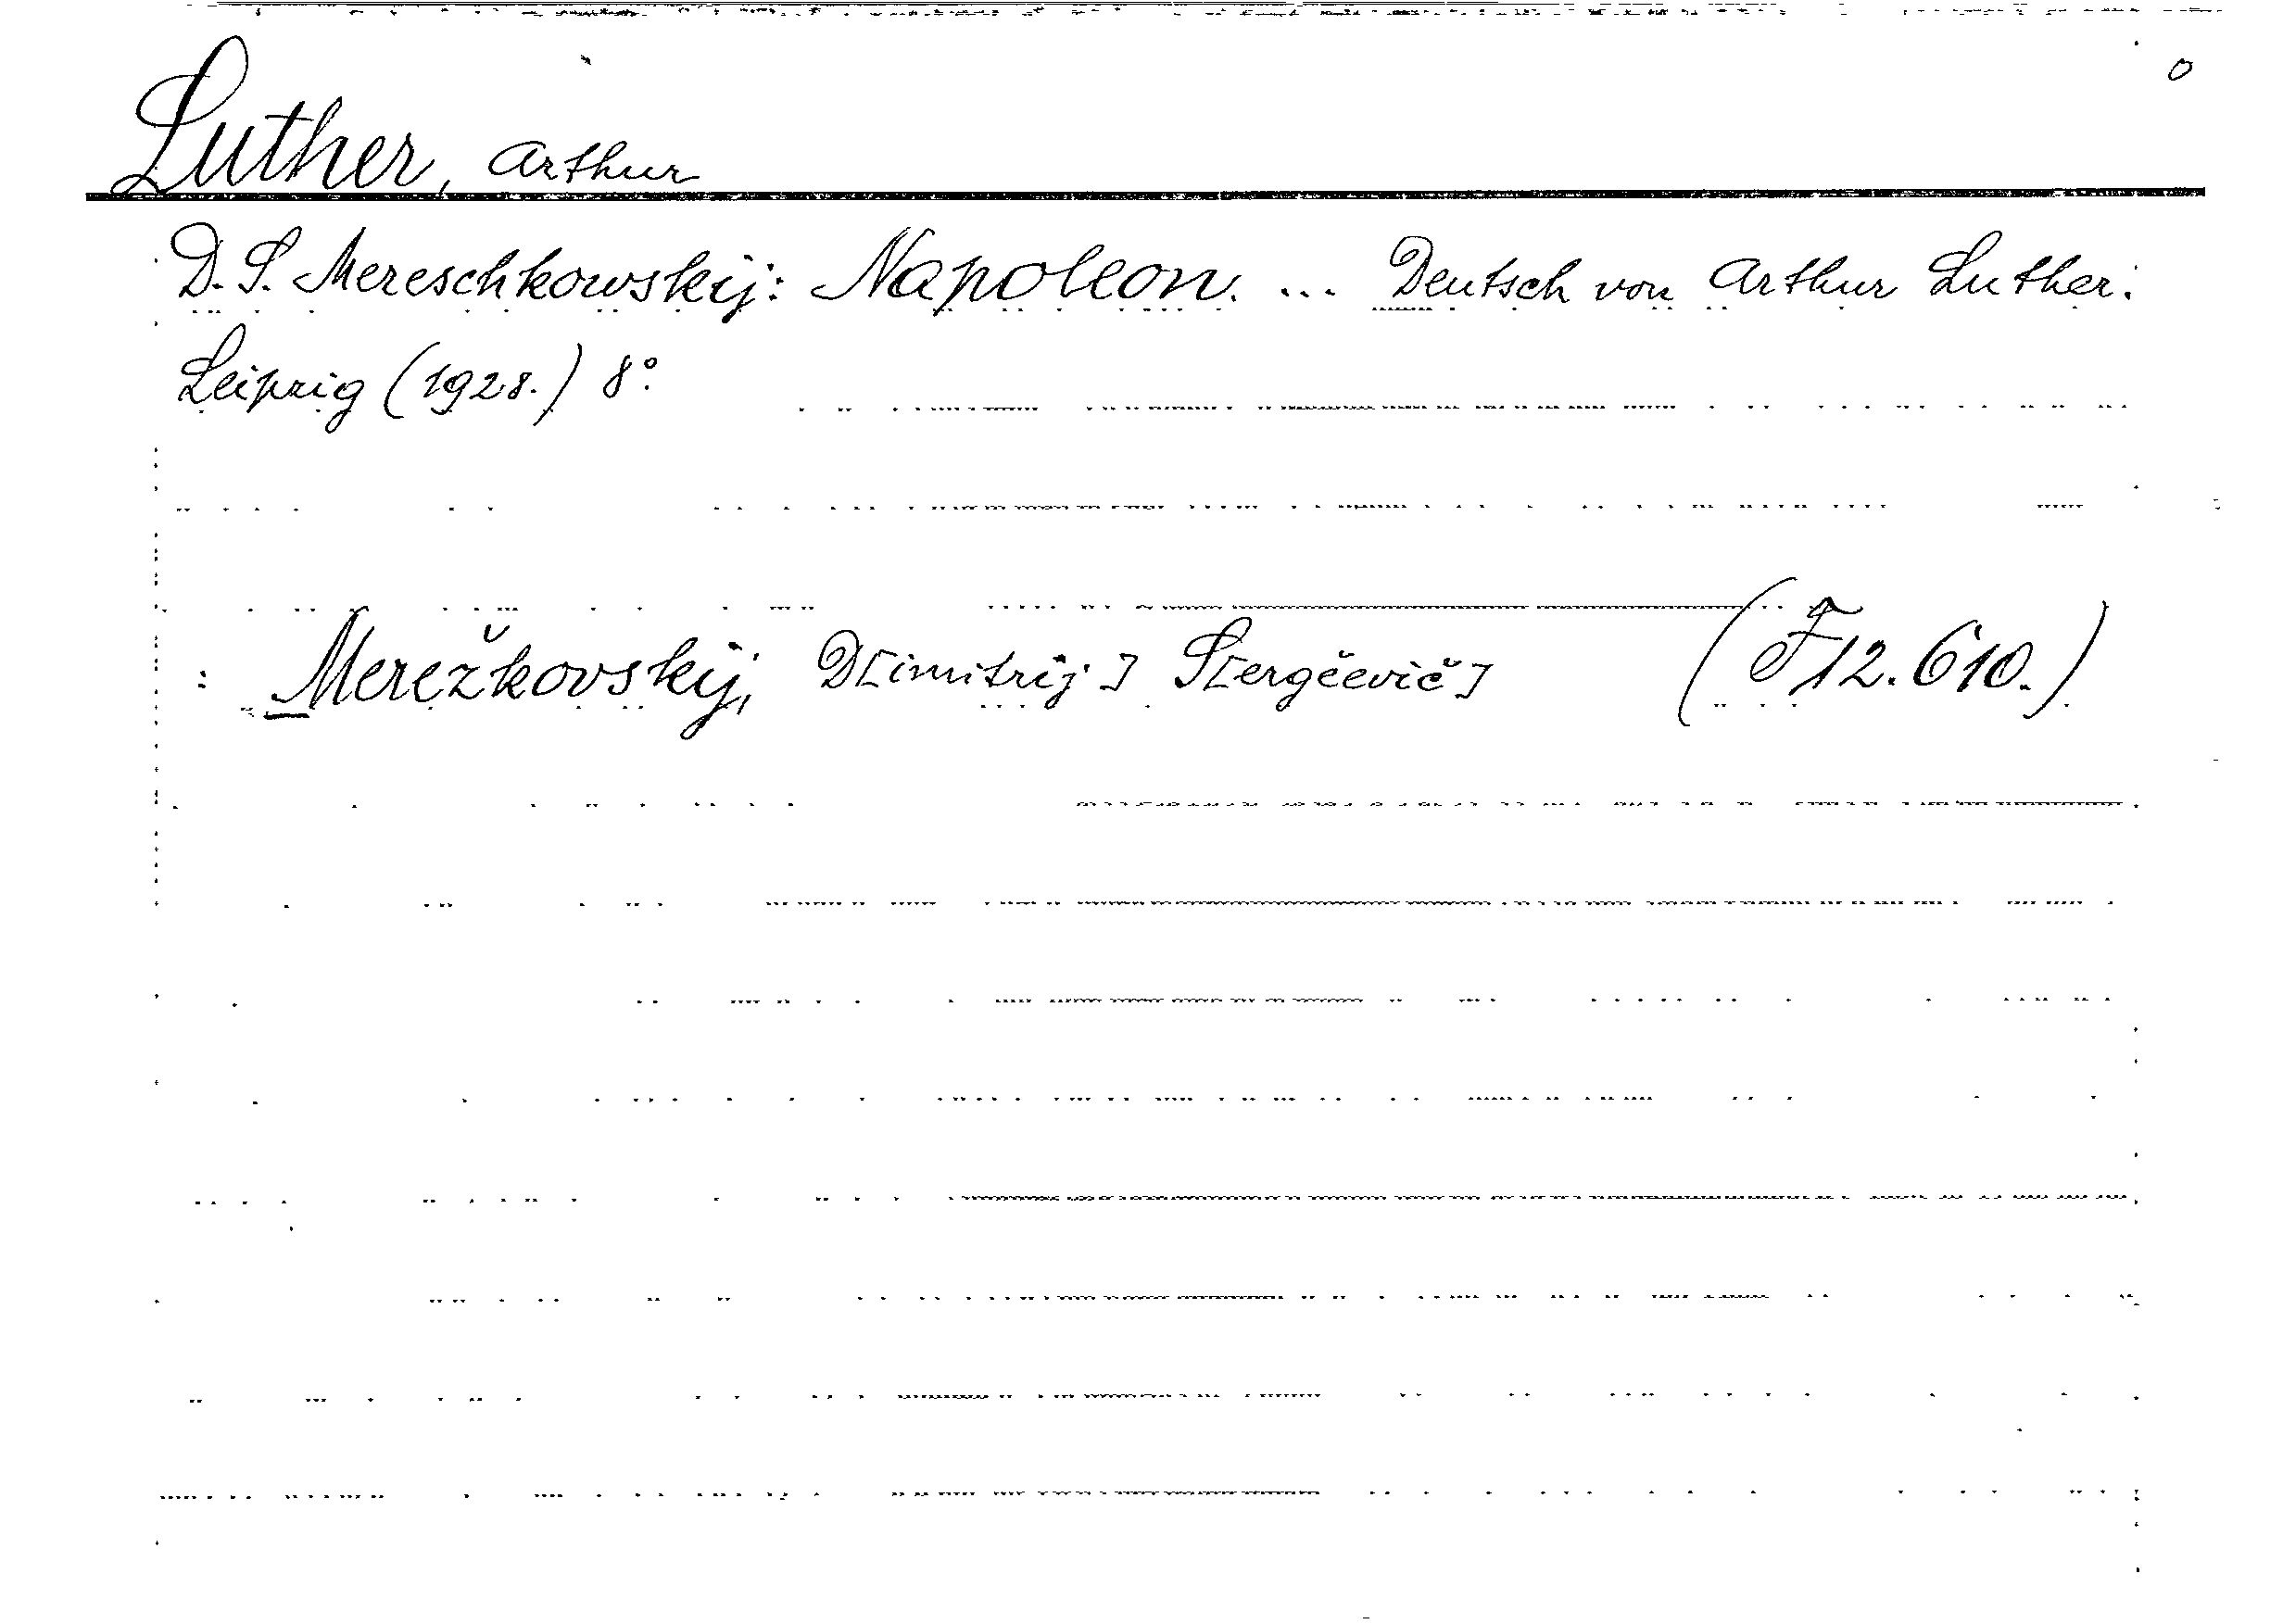 0
Luther, Arthur
D. S. Mereschkowskij: Napoleon. ... Deutsch von Arthur Luther.
Leipzig (1928.) 8°.
: Merežkovskij, D[imitrij] S[ergěevič] (F12.610.)